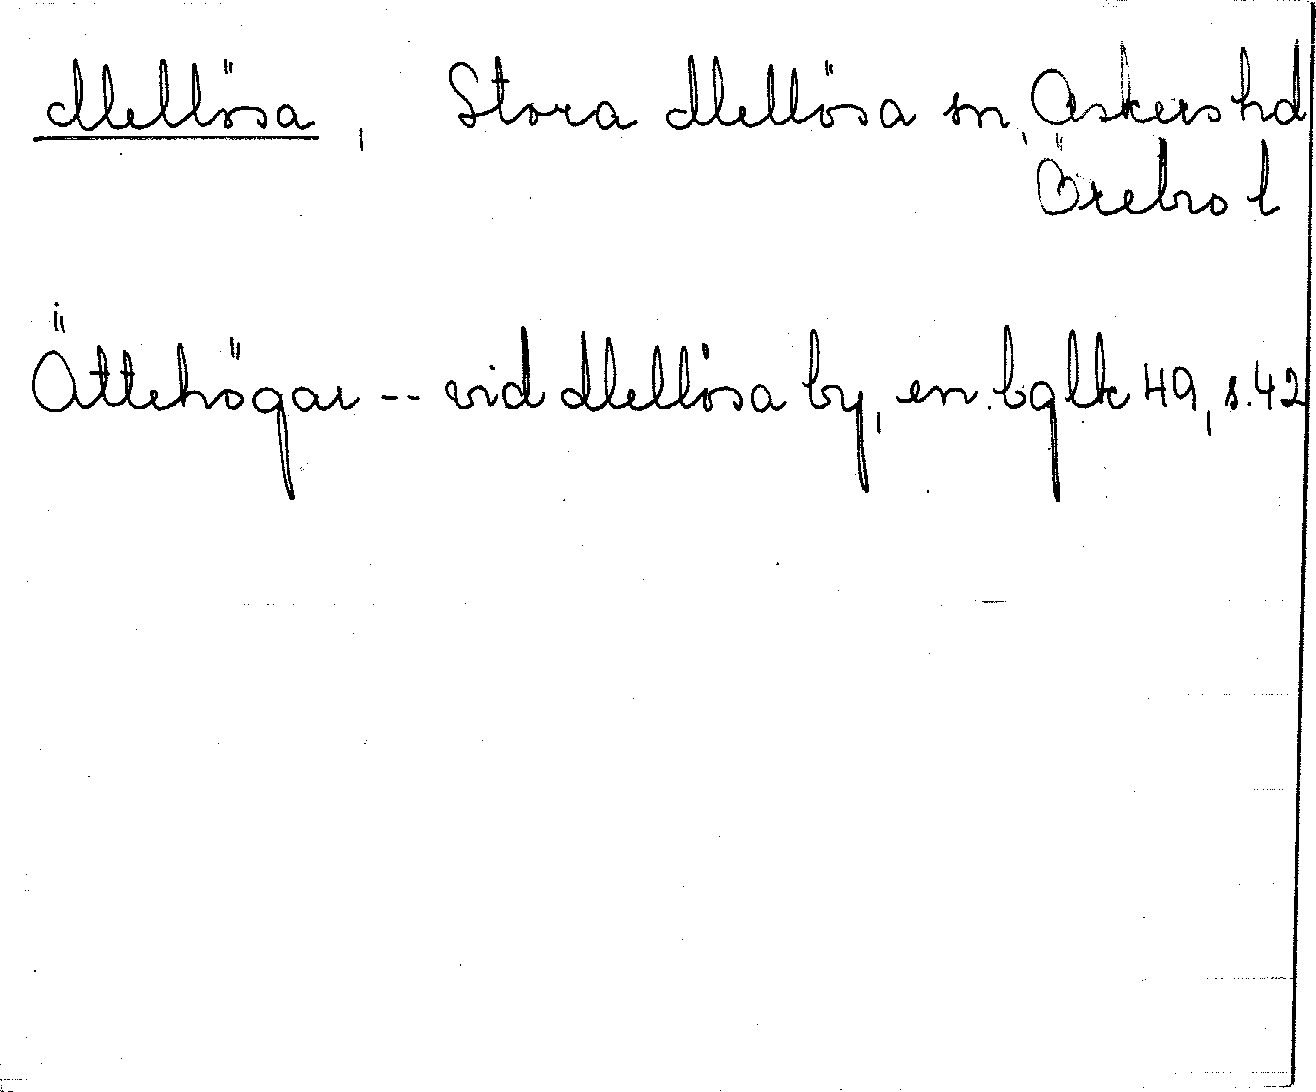 Mellösa, Stora Mellösa sn, Askers hd
Örebro l
Ättehögar -- vid Mellösa by, en. bglk 49, s. 42